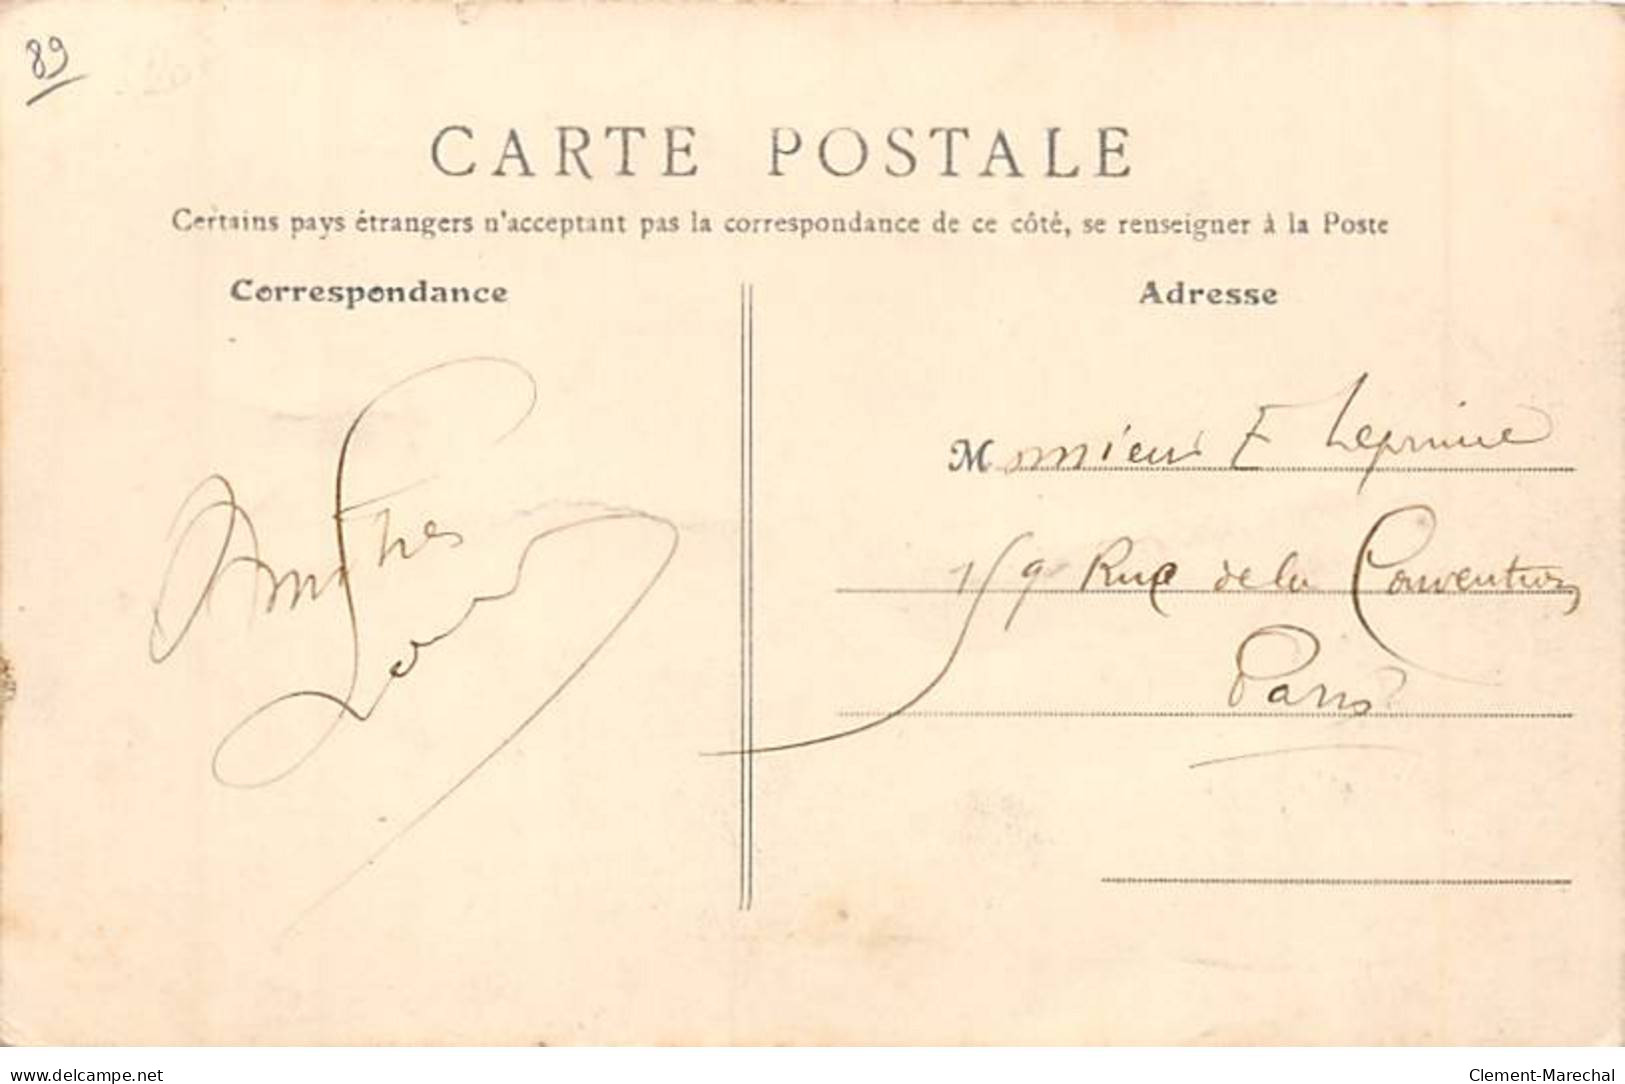 89
CARTE POSTALE
Certains pays étrangers n'acceptant pas la correspondance de ce côté, se renseigner à la Poste
Correspondance
Adresse
Amitiés
Monsieur E Leprince
159 Rue de la Convention
Paris
www.delcampe.net
Clement-Marechal